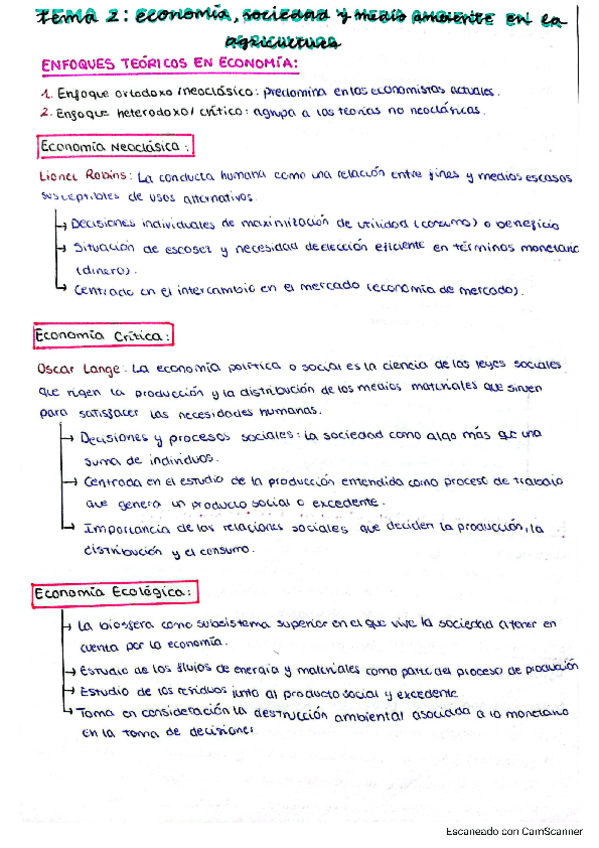 Tema 2: economía, sociedad y medio ambiente en la
agricultura
ENFOQUES TEÓRICOS EN ECONOMÍA:
1. Enfoque ortodoxo/neoclásico: predomina en los economistas actuales.
2. Enfoque heterodoxo/crítico: agrupa a las teorías no neoclásicas.
Economía Neoclásica:
Lionel Robins: La conducta humana como una relación entre fines y medios escasos
susceptibles de usos alternativos.
→ Decisiones individuales de maximización de utilidad (consumo) o beneficio
→ Situación de escasez y necesidad de elección eficiente en términos monetario
(dinero).
→ Centrado en el intercambio en el mercado (economía de mercado).
Economía Crítica:
Oscar Lange: La economía política o social es la ciencia de las leyes sociales
que rigen la producción y la distribución de los medios materiales que sirven
para satisfacer las necesidades humanas.
→ Decisiones y procesos sociales: la sociedad como algo más que una
suma de individuos.
→ Centrada en el estudio de la producción entendida como proceso de trabajo
que genera un producto social o excedente.
→ Importancia de las relaciones sociales que deciden la producción, la
distribución y el consumo.
Economía Ecológica:
→ La biosfera como subsistema superior en el que vive la sociedad a tener en
cuenta por la economía.
→ Estudio de los flujos de energía y materiales como parte del proceso de producción
→ Estudio de los residuos junto al producto social y excedente.
→ Toma en consideración la destrucción ambiental asociada a lo monetario
en la toma de decisiones
Escaneado con CamScanner